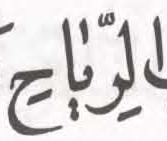 الرِّيَاحِ